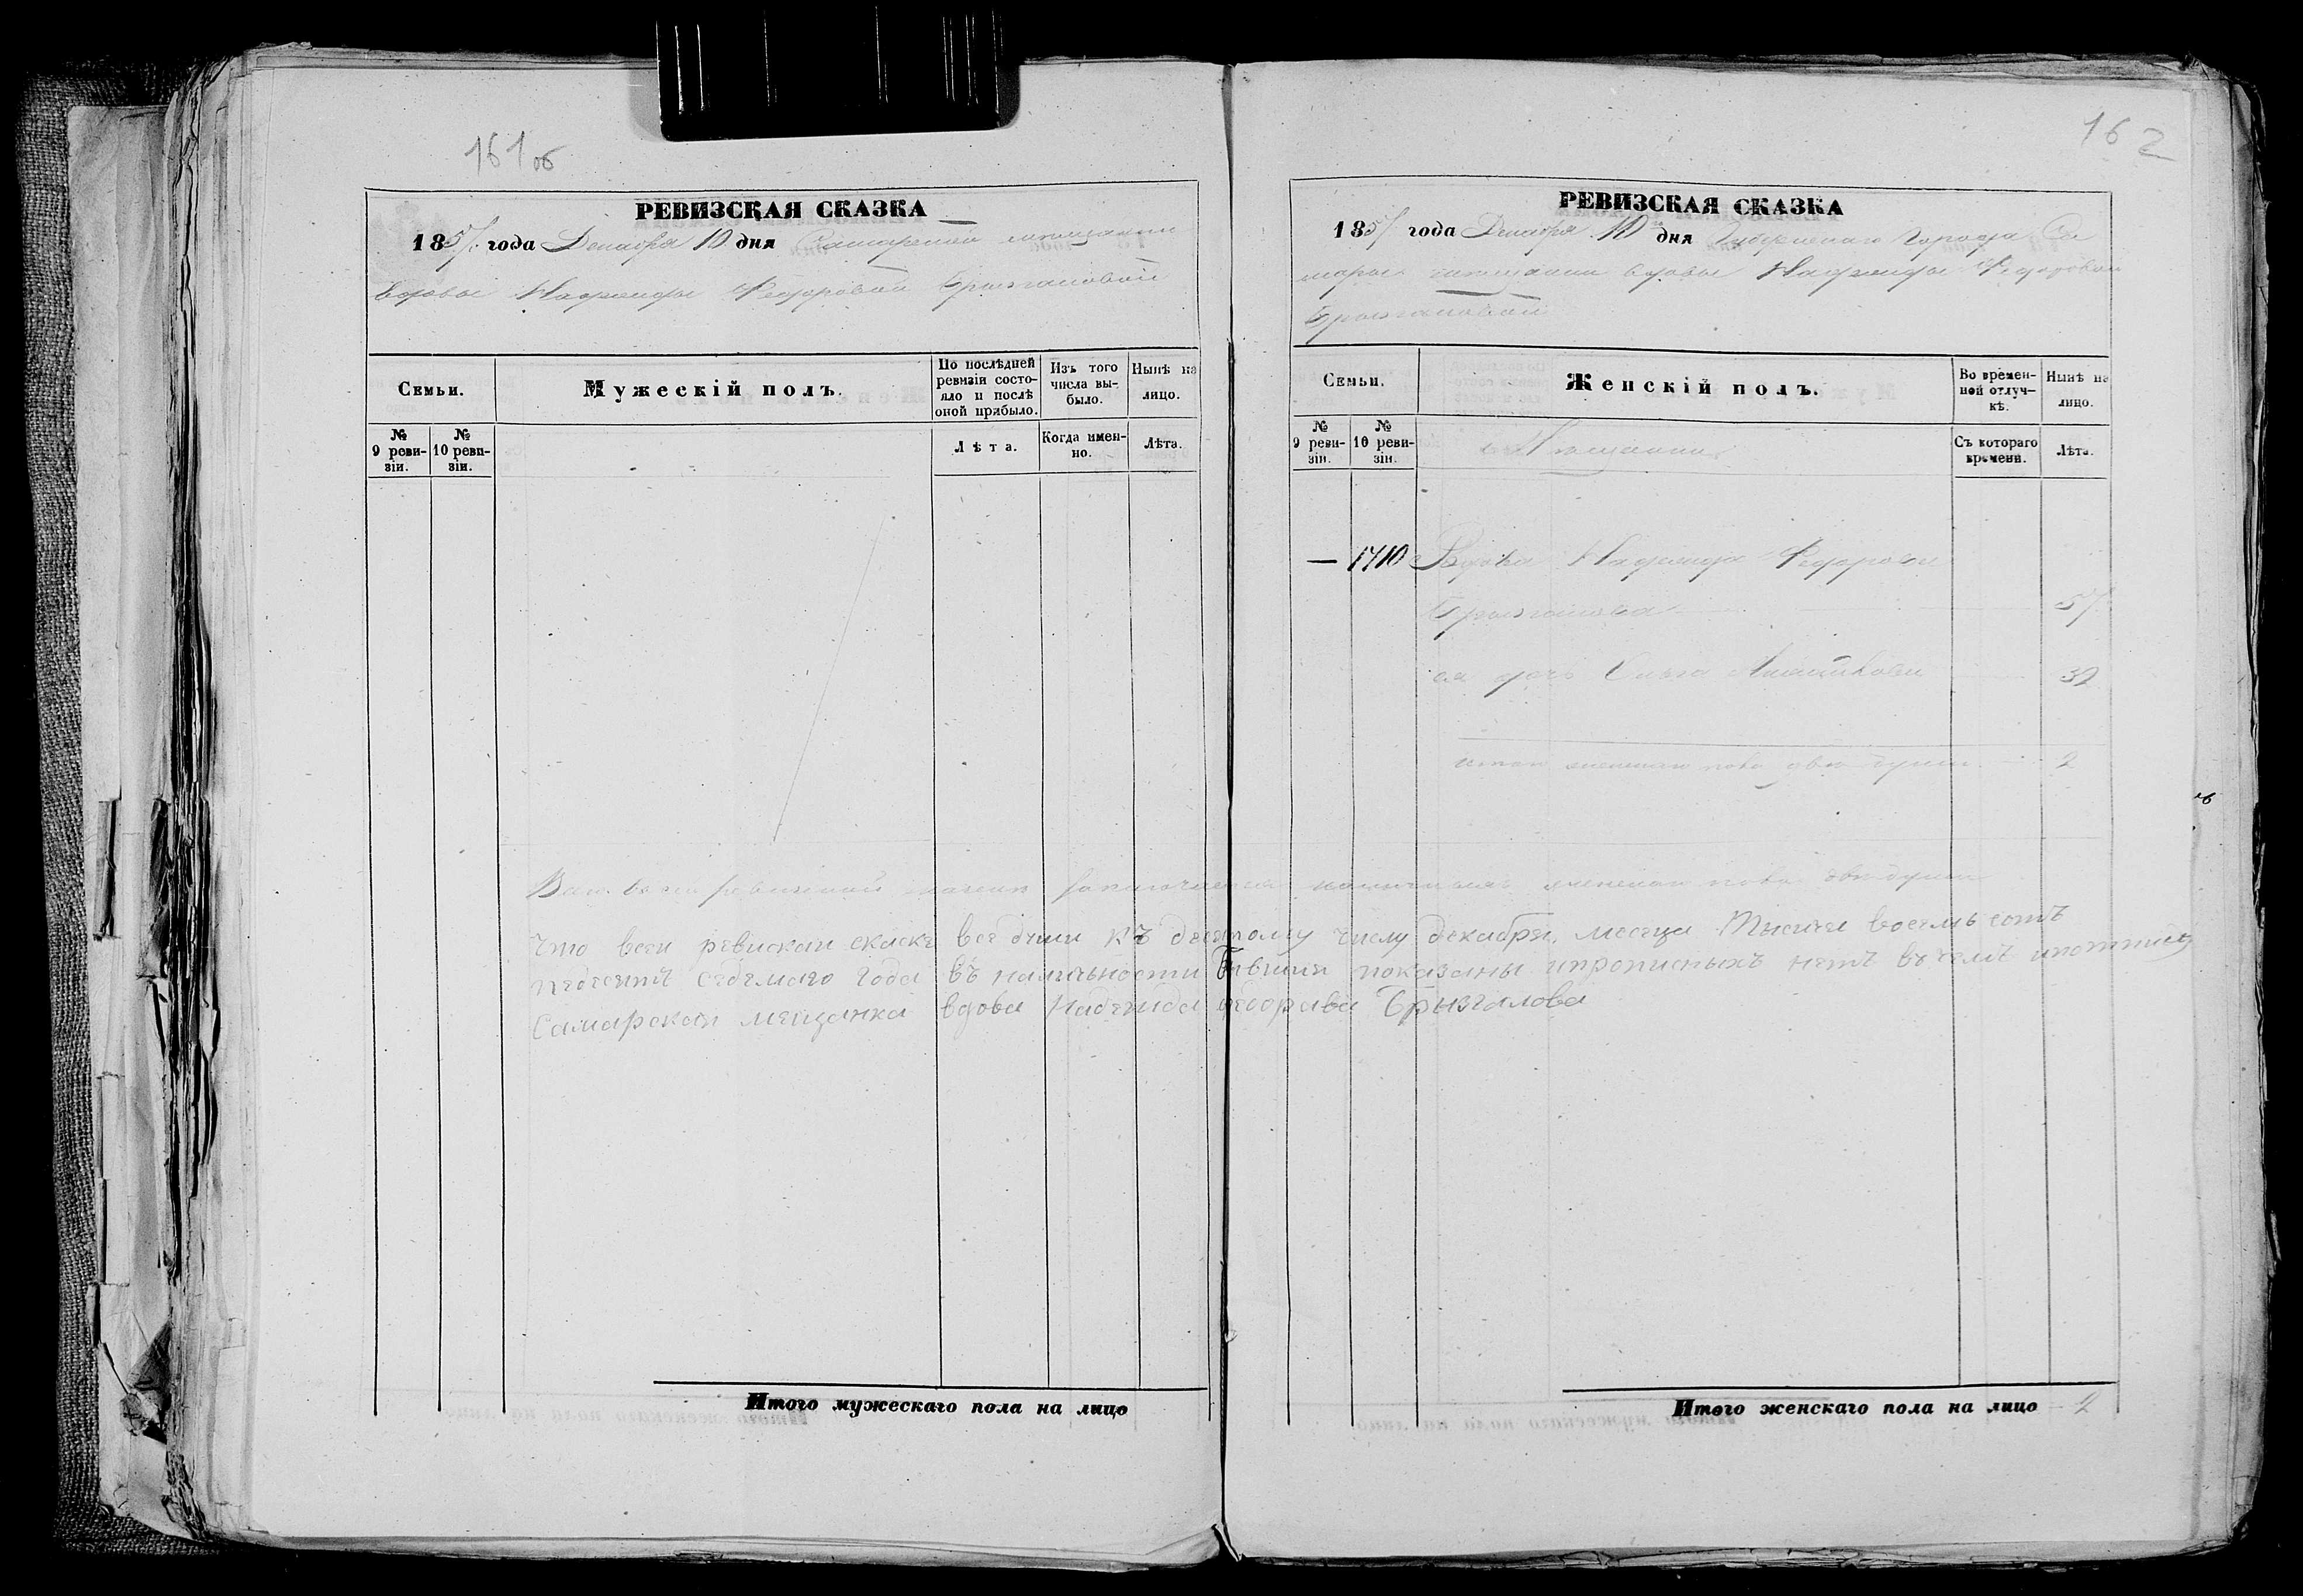 161об
РЕВИЗСКАЯ СКАЗКА
1857 года Декабря 10 дня Самарской мещанки
вдовы Надежды Федоровой Брызгаловой
Семьи.
Мужескій полъ.
По послѣдней ревизіи состояло и послѣ оной прибыло.
Изъ того числа выбыло.
Нынѣ на лицо.
№ 9 ревизіи.
№ 10 ревизіи.
Лѣта.
Когда именно.
Лѣта.
Итого мужескаго пола на лицо
162
РЕВИЗСКАЯ СКАЗКА
1857 года Декабря 10 дня Губернскаго Города Са
мары мещанки вдовы Надежды Федоровой
Брызгаловой
Семьи.
Женскій полъ.
Во временной отлучкѣ.
Нынѣ на лицо.
№ 9 ревизіи.
№ 10 ревизіи.
Съ котораго времени.
Лѣта.
— 1710 Вдова Надежда Федорова
Брызгалова 57
ея дочь Ольга 32
итого женскаго пола две души 2
женскаго пола две души
что всеи ревиской скаске все души къ десятому числу декабря месяца Тысяча восемь сотъ
седмаго года въ наличности бывшия показаны ипрописныхъ нетъ вчемъ
Самарская мещанка вдова Надежда федорава Брызгалова
Итого женскаго пола на лицо 2